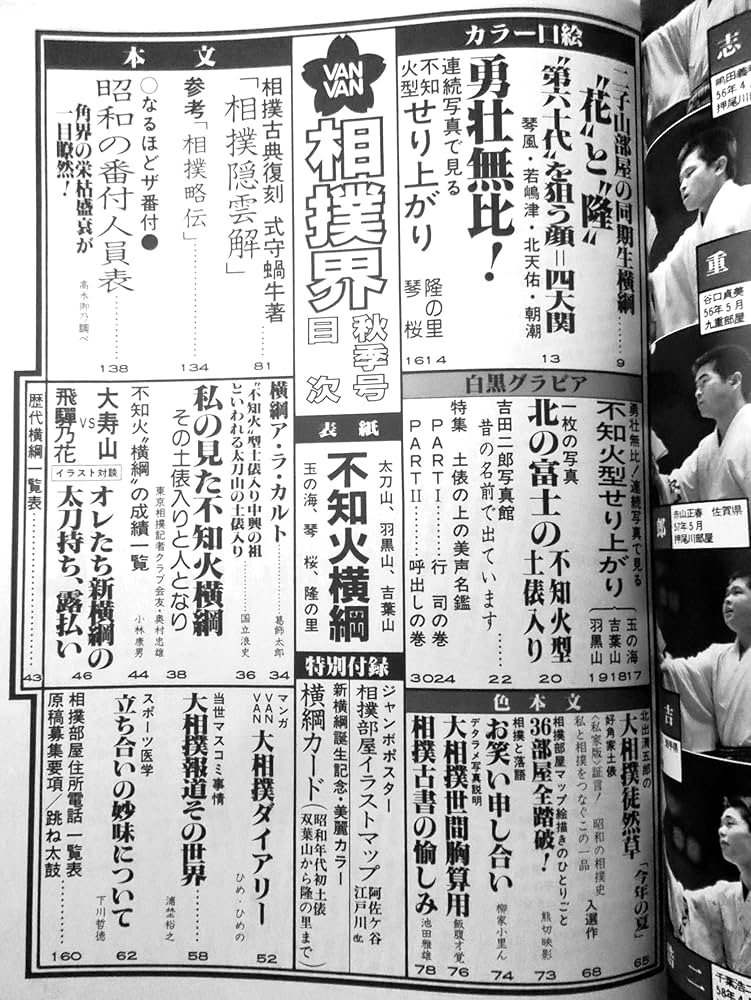 VAN VAN
相撲界
秋季号
目次
カラー口絵
二子山部屋の同期生横綱
“花”と“隆”……9
“第六十代”を狙う顔=四大関
琴風・若嶋津・北天佑・朝潮 13
勇壮無比!
連続写真で見る
不知火型 せり上がり
隆の里 14
琴桜 16
白黒グラビア
勇壮無比!連続写真で見る
不知火型せり上がり
玉の海 17
吉葉山 18
羽黒山 19
一枚の写真
北の富士の不知火型土俵入り 20
吉田二郎写真館
昔の名前で出ています……22
特集 土俵の上の美声名鑑
PARTⅠ……行司の巻 24
PARTⅡ……呼出しの巻 30
色本文
北出清五郎の
大相撲徒然草「今年の夏」 65
好角家土俵
〈私家版〉証言! 昭和の相撲史
私と相撲をつなぐこの一品 入選作 68
相撲部屋マップ絵描きのひとりごと
36部屋全踏破! 熊切映影 73
相撲と落語
お笑い申し合い 柳家小里ん 74
デタラメ写真説明
大相撲世間胸算用 飯腹才覚 76
相撲古書の愉しみ 池田雅雄 78
表紙
不知火横綱
太刀山、羽黒山、吉葉山
玉の海、琴桜、隆の里
特別付録
ジャンボポスター
相撲部屋イラストマップ 阿佐ケ谷 江戸川 他
新横綱誕生記念・美麗カラー
横綱カード(昭和年代初土俵 双葉山から隆の里まで)
本文
相撲古典復刻 式守蝸牛著
「相撲隠雲解」……81
参考「相撲略伝」……134
○なるほどザ番付●
昭和の番付人員表……138
角界の栄枯盛衰が
一目瞭然!
高木御乃調べ
横綱ア・ラ・カルト……葛飾太郎 34
“不知火”型土俵入り中興の祖
といわれる太刀山の土俵入り……国立浪史 36
私の見た不知火横綱
その土俵入りと人となり
東京相撲記者クラブ会友・奥村忠雄 38
不知火“横綱”の成績一覧……小林康男 44
大寿山
VS
飛騨乃花
イラスト対談
オレたち新横綱の
太刀持ち、露払い 46
歴代横綱一覧表……43
マンガ
VAN VAN 大相撲ダイアリー ひめ・ひめの 52
当世マスコミ事情
大相撲報道その世界……浦埜裕之 58
スポーツ医学
立ち合いの妙味について 下川哲徳 62
相撲部屋住所電話一覧表
原稿募集要項/跳ね太鼓……160
志
56年4
押尾川部
重
谷口貞美
56年5月
九重部屋
郎
赤山正春 佐賀県
57年5月
押尾川部屋
吉
浩二
千葉浩二
58年